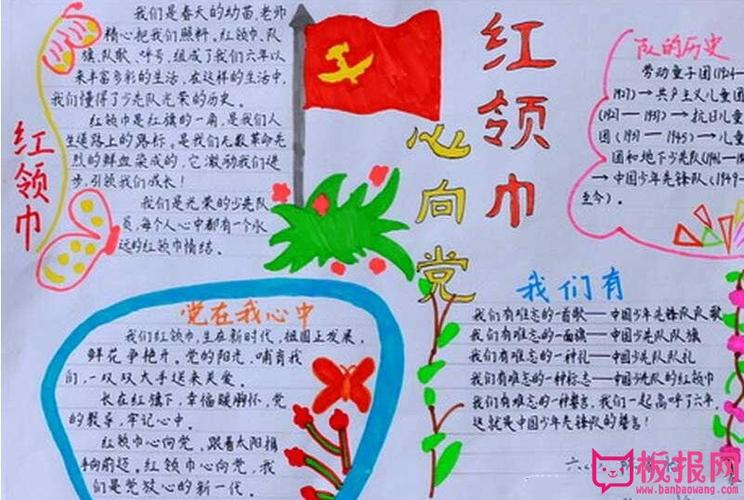 红领巾
我们是春天的幼苗,老师
精心把我们照料。红领巾、队
旗、队歌、呼号,组成了我们六年以
来丰富多彩的生活,在这样的生活中,
我们懂得了少先队光荣的历史。
红领巾是红旗的一角,是我们人
生道路上的路标。是我们无数革命先
烈的鲜血染成的,它激励我们进
步,引领我们成长!
我们是光荣的少先队
员,每个人心中都有一个永
远的红领巾情结。
红领巾
心向党
队的历史
劳动童子团(1924—
1927)→共产主义儿童团
(1927—1931)→抗日儿童
团(1931—1945)→儿童
团和地下少先队(1946—19
→中国少年先锋队(1949—
至今)。
党在我心中
我们红领巾,生在新时代,祖国正发展,
鲜花争艳开。党的阳光,哺育我
们,一双双大手送来关爱。
长在红旗下,幸福暖胸怀,党
的教导,牢记心中。
红领巾心向党,跟着太阳指
手向前迈。红领巾心向党,我
们是党放心的新一代。
我们有
我们有难忘的一首歌——中国少年先锋队队歌
我们有难忘的一面旗——中国少先队队旗
我们有难忘的一种礼——中国少先队队礼
我们有难忘的一种标志——中国少先队的红领巾
我们有难忘的一种誓言,我们一起高呼了六年,
这就是中国少年先锋队的誓言!
板报网
www.banbaowang.com